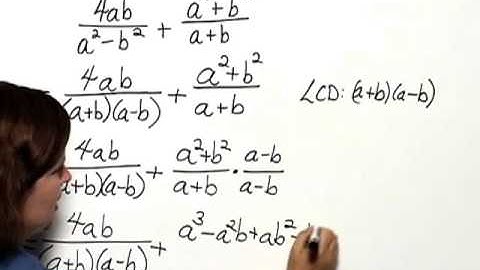 4ab/(a²-b²) + (a²+b)/(a+b)
4ab/((a+b)(a-b)) + (a²+b²)/(a+b)   LCD: (a+b)(a-b)
4ab/(a+b)(a-b) + (a²+b²)/(a+b) · (a-b)/(a-b)
4ab/((a+b)(a-b)) + a³-a²b+ab²-